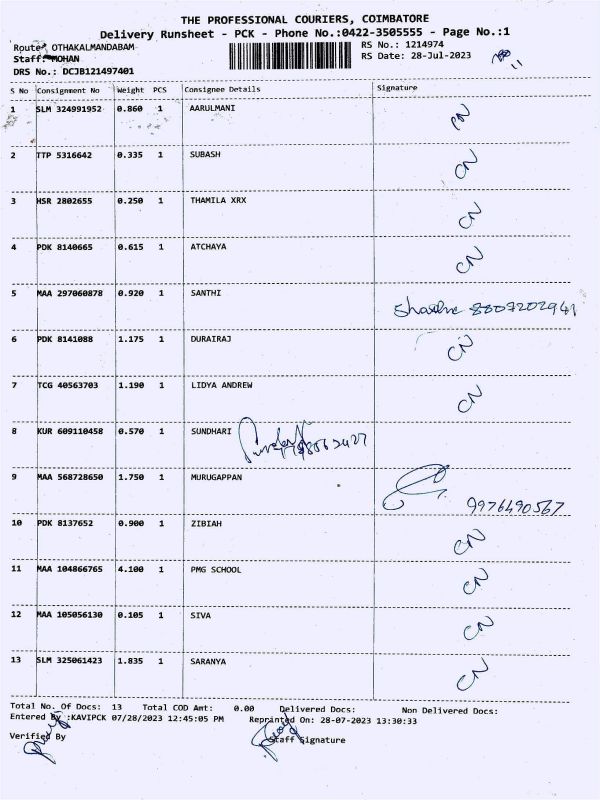 THE PROFESSIONAL COURIERS, COIMBATORE
Delivery Runsheet - PCK - Phone No.:0422-3505555 - Page No.:1
Route: OTHAKALMANDABAM RS No.: 1214974
Staff: MOHAN RS Date: 28-Jul-2023
DRS No.: DCJB121497401
S No Consignment No Weight PCS Consignee Details Signature
1 SLM 324991952 0.860 1 AARULMANI
2 TTP 5316642 0.335 1 SUBASH CN
3 HSR 2802655 0.250 1 THAMILA XRX CN
4 PDK 8140665 0.615 1 ATCHAYA CN
5 MAA 297060878 0.920 1 SANTHI 8807202941
6 PDK 8141088 1.175 1 DURAIRAJ CN
7 TCG 40563703 1.190 1 LIDYA ANDREW CN
8 KUR 609110458 0.570 1 SUNDHARI
9 MAA 568728650 1.750 1 MURUGAPPAN 9976490567
10 PDK 8137652 0.900 1 ZIBIAH CN
11 MAA 104866765 4.100 1 PMG SCHOOL CN
12 MAA 105056130 0.105 1 SIVA CN
13 SLM 325061423 1.835 1 SARANYA CN
Total No. Of Docs: 13 Total COD Amt: 0.00 Delivered Docs: Non Delivered Docs:
Entered By :KAVIPCK 07/28/2023 12:45:05 PM Reprinted On: 28-07-2023 13:30:33
Verified By Staff Signature